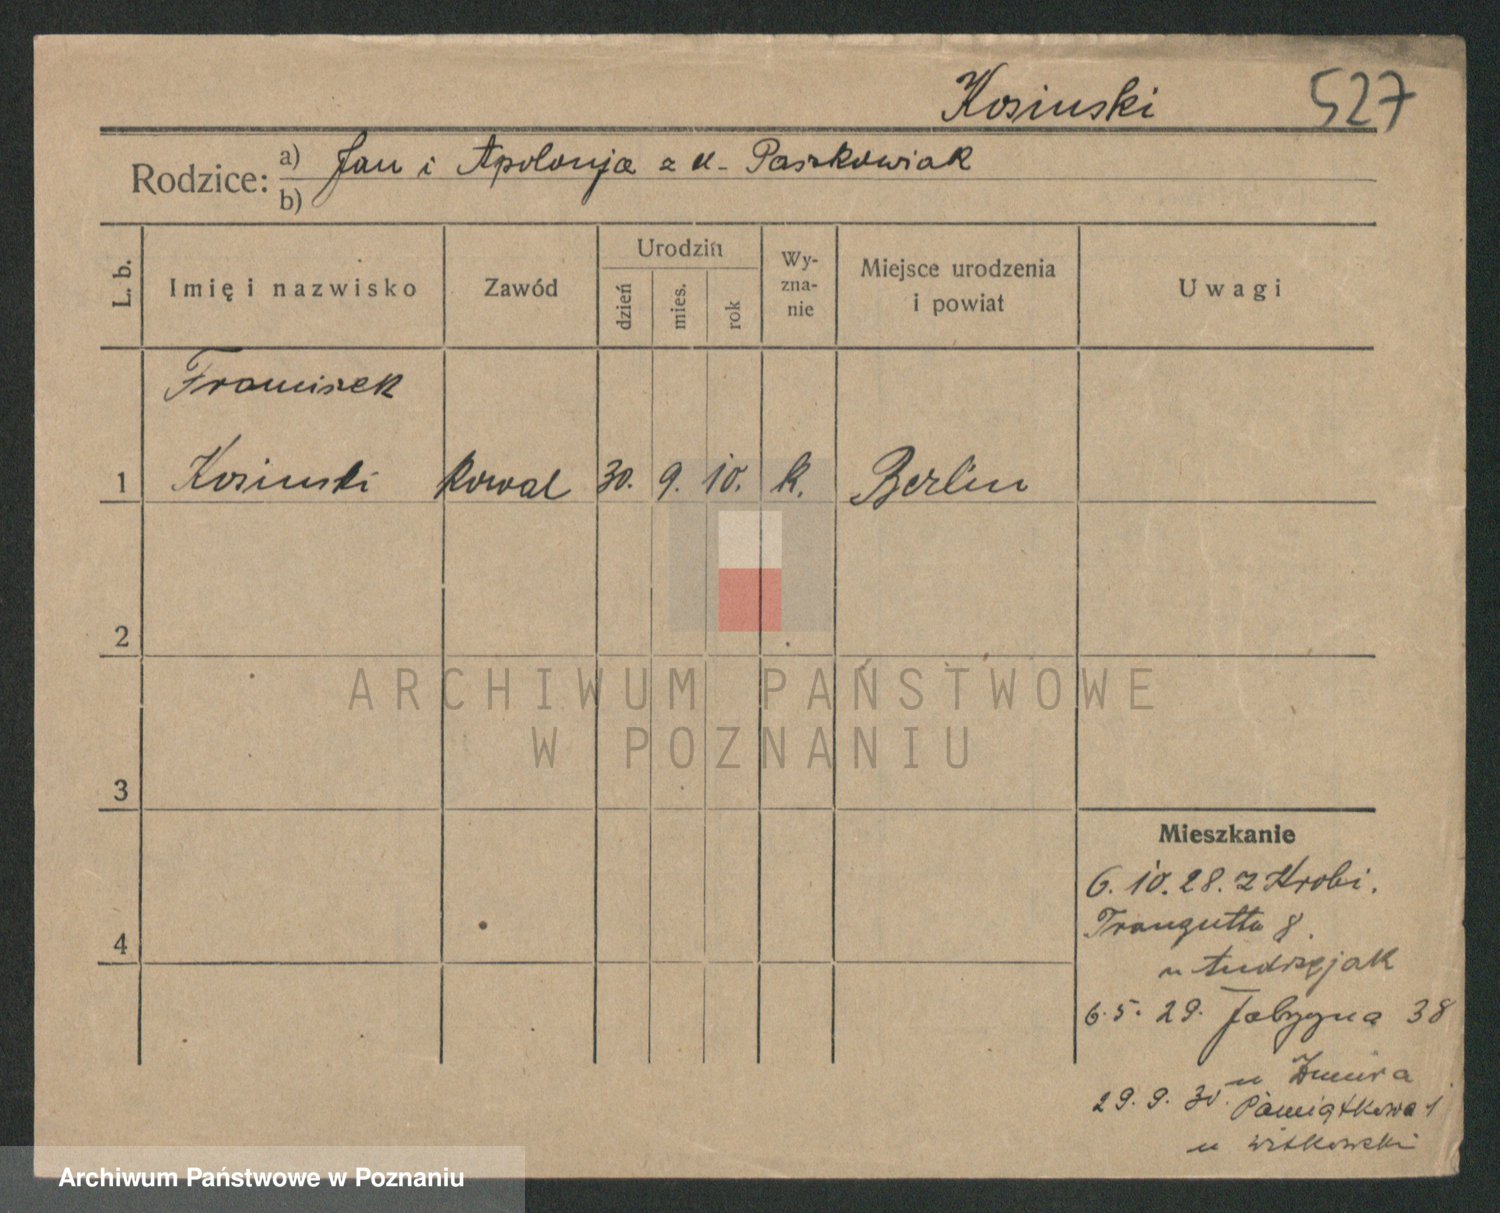 Kosinski 527
Rodzice: a) Jan i Apolonja z d. Paszkowiak
b)
L. b. Imię i nazwisko Zawód Urodzin Wyznanie Miejsce urodzenia i powiat Uwagi
dzień mies. rok
Franciszek
1 Kosinski kowal 30. 9. 10. k. Berlin
2
3
4
Mieszkanie
6. 10. 28. z Krobi.
Traugutta 8.
u Andrzejak
6. 5. 29. Fabryczna 38
u
29. 9. 30. Pamiątkowa 1
u Witkowski
ARCHIWUM PAŃSTWOWE
W POZNANIU
Archiwum Państwowe w Poznaniu